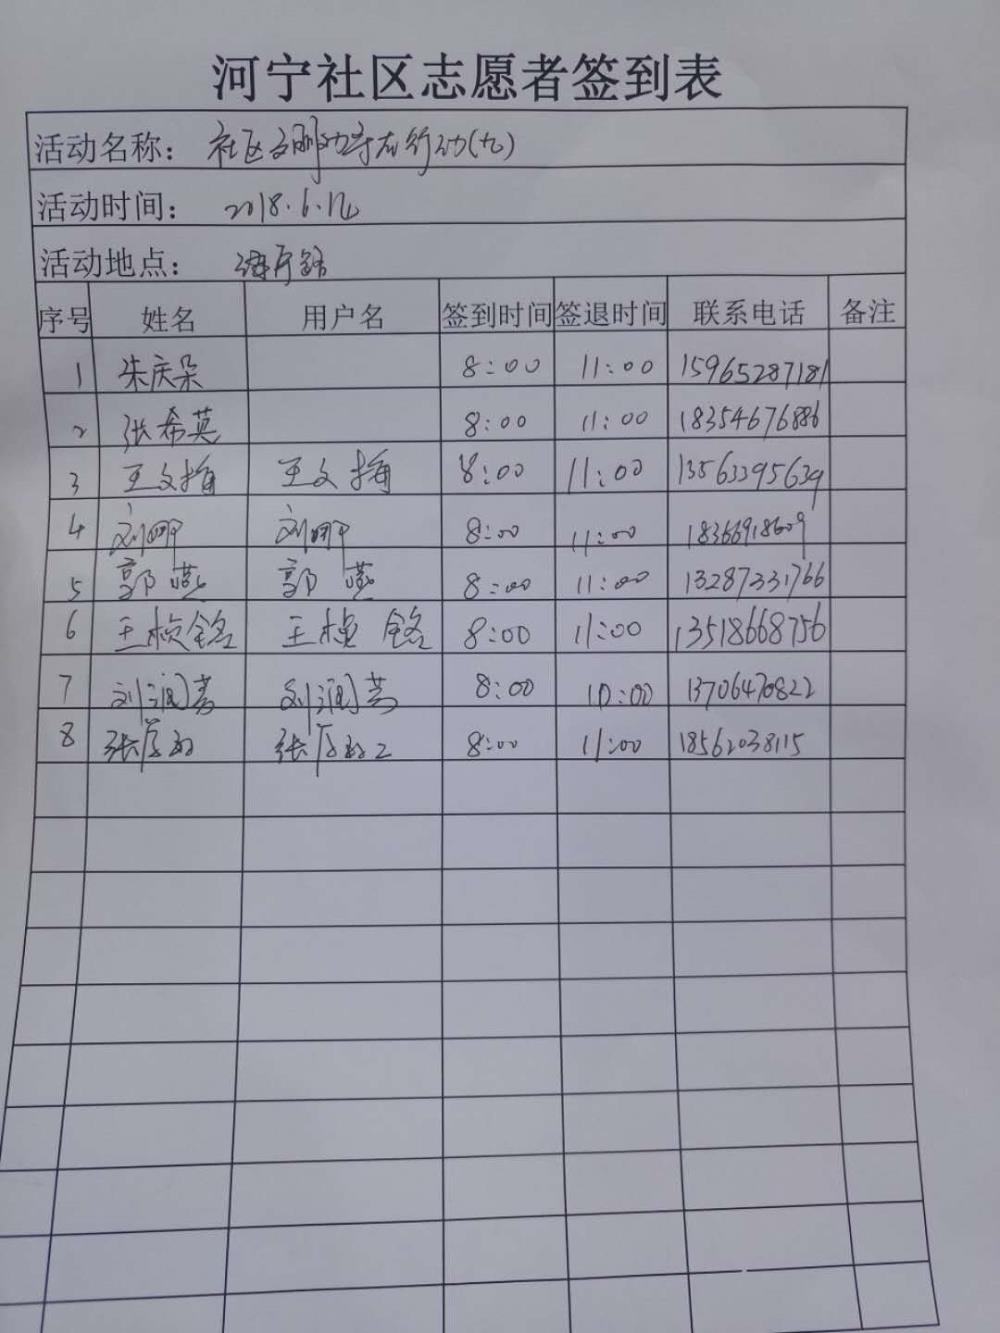 河宁社区志愿者签到表
活动名称： 社区文明劝导在行动(九)
活动时间： 2018.6.12
活动地点：
序号 姓名 用户名 签到时间 签退时间 联系电话 备注
1 朱庆朵 8:00 11:00 15965287181
2 张希英 8:00 11:00 18354676886
3 王文梅 王文梅 8:00 11:00 13563395639
4 刘娜 刘娜 8:00 11:00 18366918609
5 郭燕 郭燕 8:00 11:00 13287331766
6 王桢铭 王桢铭 8:00 11:00 13518668756
7 刘润芳 刘润芳 8:00 10:00 13706470822
8 张 张 8:00 11:00 18562038115